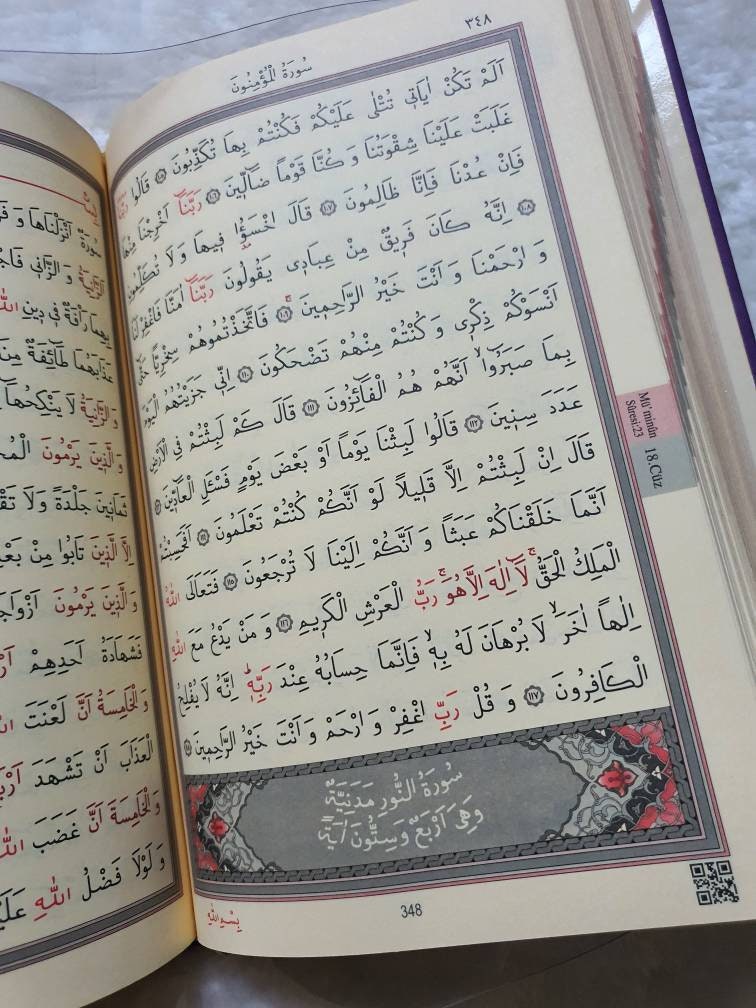 ٣٤٨
سُورَةُ الْمُؤْمِنُونَ
اَلَمْ تَكُنْ اٰيَاتٖي تُتْلٰى عَلَيْكُمْ فَكُنْتُمْ بِهَا تُكَذِّبُونَ ﴿١٠٥﴾ قَالُوا رَبَّنَا
غَلَبَتْ عَلَيْنَا شِقْوَتُنَا وَكُنَّا قَوْماً ضَٓالّٖينَ ﴿١٠٦﴾ رَبَّنَٓا اَخْرِجْنَا مِنْهَا
فَاِنْ عُدْنَا فَاِنَّا ظَالِمُونَ ﴿١٠٧﴾ قَالَ اخْسَؤُ۫ا فٖيهَا وَلَا تُكَلِّمُونِ
﴿١٠٨﴾ اِنَّهُ كَانَ فَرٖيقٌ مِنْ عِبَادٖي يَقُولُونَ رَبَّنَٓا اٰمَنَّا فَاغْفِرْ لَنَا
وَارْحَمْنَا وَاَنْتَ خَيْرُ الرَّاحِمٖينَ ﴿١٠٩﴾ فَاتَّخَذْتُمُوهُمْ سِخْرِيًّا حَتّٰٓى
اَنْسَوْكُمْ ذِكْرٖي وَكُنْتُمْ مِنْهُمْ تَضْحَكُونَ ﴿١١٠﴾ اِنّٖي جَزَيْتُهُمُ الْيَوْمَ
بِمَا صَبَرُٓواۙ اَنَّهُمْ هُمُ الْفَٓائِزُونَ ﴿١١١﴾ قَالَ كَمْ لَبِثْتُمْ فِي الْاَرْضِ
عَدَدَ سِنٖينَ ﴿١١٢﴾ قَالُوا لَبِثْنَا يَوْماً اَوْ بَعْضَ يَوْمٍ فَسْـَٔلِ الْعَٓادّٖينَ ﴿١١٣﴾
قَالَ اِنْ لَبِثْتُمْ اِلَّا قَلٖيلاً لَوْ اَنَّكُمْ كُنْتُمْ تَعْلَمُونَ ﴿١١٤﴾ اَفَحَسِبْتُمْ
اَنَّمَا خَلَقْنَاكُمْ عَبَثاً وَاَنَّكُمْ اِلَيْنَا لَا تُرْجَعُونَ ﴿١١٥﴾ فَتَعَالَى اللّٰهُ
الْمَلِكُ الْحَقُّۚ لَٓا اِلٰهَ اِلَّا هُوَۚ رَبُّ الْعَرْشِ الْكَرٖيمِ ﴿١١٦﴾ وَمَنْ يَدْعُ مَعَ اللّٰهِ
اِلٰهاً اٰخَرَۙ لَا بُرْهَانَ لَهُ بِهٖۙ فَاِنَّمَا حِسَابُهُ عِنْدَ رَبِّهٖؕ اِنَّهُ لَا يُفْلِحُ
الْكَافِرُونَ ﴿١١٧﴾ وَقُلْ رَبِّ اغْفِرْ وَارْحَمْ وَاَنْتَ خَيْرُ الرَّاحِمٖينَ ﴿١١٨﴾
سُورَةُ النُّورِ مَدَنِيَّةٌ
وَهِيَ اَرْبَعٌ وَسِتُّونَ اٰيَةً
بِسْمِ اللّٰهِ
348
Mü'minûn
Sûresi:23
18.Cüz
سُورَةٌ اَنْزَلْنَاهَا
اَلزَّانِيَةُ وَالزَّانٖي
بِهِمَا رَأْفَةٌ فٖي دٖينِ
عَذَابَهُمَا طَٓائِفَةٌ مِنَ
وَالزَّانِيَةُ لَا يَنْكِحُهَٓا
وَالَّذٖينَ يَرْمُونَ
ثَمَانٖينَ جَلْدَةً وَلَا
اِلَّا الَّذٖينَ تَابُوا مِنْ
وَالَّذٖينَ يَرْمُونَ
فَشَهَادَةُ اَحَدِهِمْ
وَالْخَامِسَةُ اَنَّ لَعْنَتَ
الْعَذَابَ اَنْ تَشْهَدَ
وَالْخَامِسَةَ اَنَّ غَضَبَ
وَلَوْلَا فَضْلُ اللّٰهِ